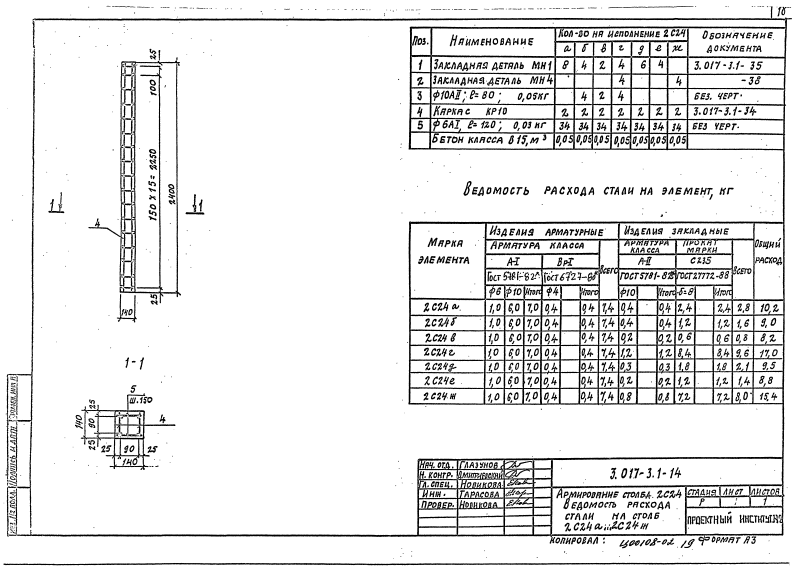 18
Поз.
Наименование
Кол-во на исполнение 2С24
Обозначение документа
а б в г д е ж
1 Закладная деталь МН1 8 4 2 4 6 4 3.017-3.1-35
2 Закладная деталь МН4 4 4 -38
3 Ф10АII; ℓ=80; 0,05кг 4 2 4 без. черт.
4 Каркас КР10 2 2 2 2 2 2 2 3.017-3.1-34
5 Ф6АI, ℓ=120; 0,03 кг 34 34 34 34 34 34 34 без черт.
Бетон класса В15, м³ 0,05 0,05 0,05 0,05 0,05 0,05 0,05
25
100
150 х 15 = 2250
2400
1 1
4
25
140
Ведомость расхода стали на элемент, кг
Марка элемента
Изделия арматурные
Изделия закладные
Общий расход
Арматура класса
Всего
Арматура класса
Прокат марки
Всего
А-I
Вр-I
А-II
С235
ГОСТ 5781-82*
ГОСТ 6727-80*
ГОСТ 5781-82*
ГОСТ 27772-88
Ф6 Ф10 Итого Ф4 Итого Ф10 Итого -δ=8 Итого
2С24а 1,0 6,0 7,0 0,4 0,4 7,4 0,4 0,4 2,4 2,4 2,8 10,2
2С24б 1,0 6,0 7,0 0,4 0,4 7,4 0,4 0,4 1,2 1,2 1,6 9,0
2С24в 1,0 6,0 7,0 0,4 0,4 7,4 0,2 0,2 0,6 0,6 0,8 8,2
2С24г 1,0 6,0 7,0 0,4 0,4 7,4 1,2 1,2 8,4 8,4 9,6 17,0
2С24д 1,0 6,0 7,0 0,4 0,4 7,4 0,3 0,3 1,8 1,8 2,1 9,5
2С24е 1,0 6,0 7,0 0,4 0,4 7,4 0,2 0,2 1,2 1,2 1,4 8,8
2С24ж 1,0 6,0 7,0 0,4 0,4 7,4 0,8 0,8 7,2 7,2 8,0 15,4
1-1
5
ш.150
25
140 90
25
4
25 90 25
140
Нач. отд. Глазунов
Н. контр. Дмитриевский
Гл. спец. Новикова
Инж. Тарасова
Провер. Новикова
3.017-3.1-14
Армирование столба 2С24
Ведомость расхода
стали на столб
2С24а...2С24ж
Стадия Лист Листов
Р 1
Проектный институт №2
Копировал: Ц00108-02 19 Формат А3
Инв. № подл. Подпись и дата Взам. инв. №